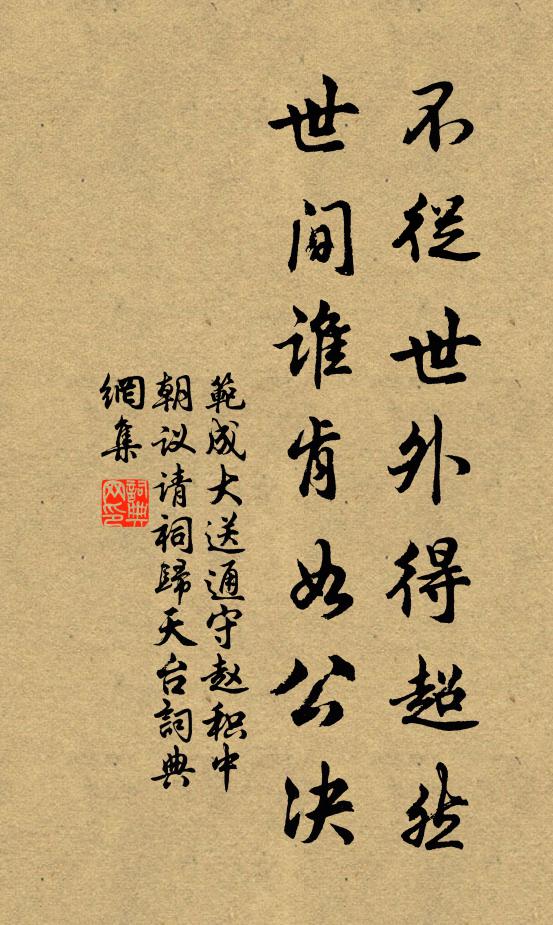 不從世外得超然
世间誰肯如公决
範成大送通守赵积中
朝议请祠歸天台詞典
網集
詞典
网印